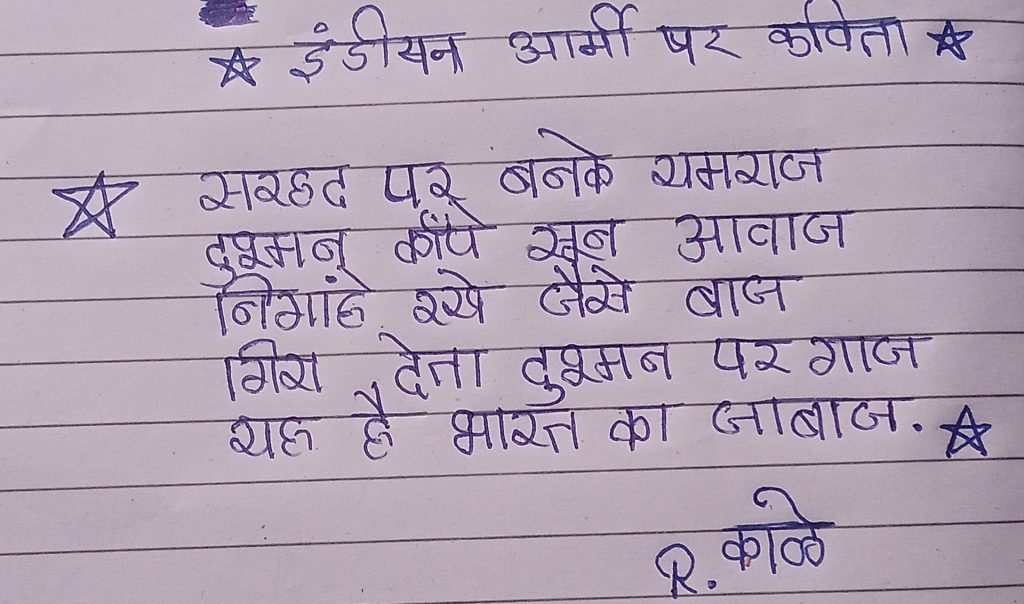 ☆ इंडीयन आर्मी पर कविता ☆
☆ सरहद पर बनके यमराज
दुश्मन काँपे सून आवाज
निगांहे रखे जैसे बाज
गिरा देता दुश्मन पर गाज
यह है भारत का जाबाज. ☆
R. काळे